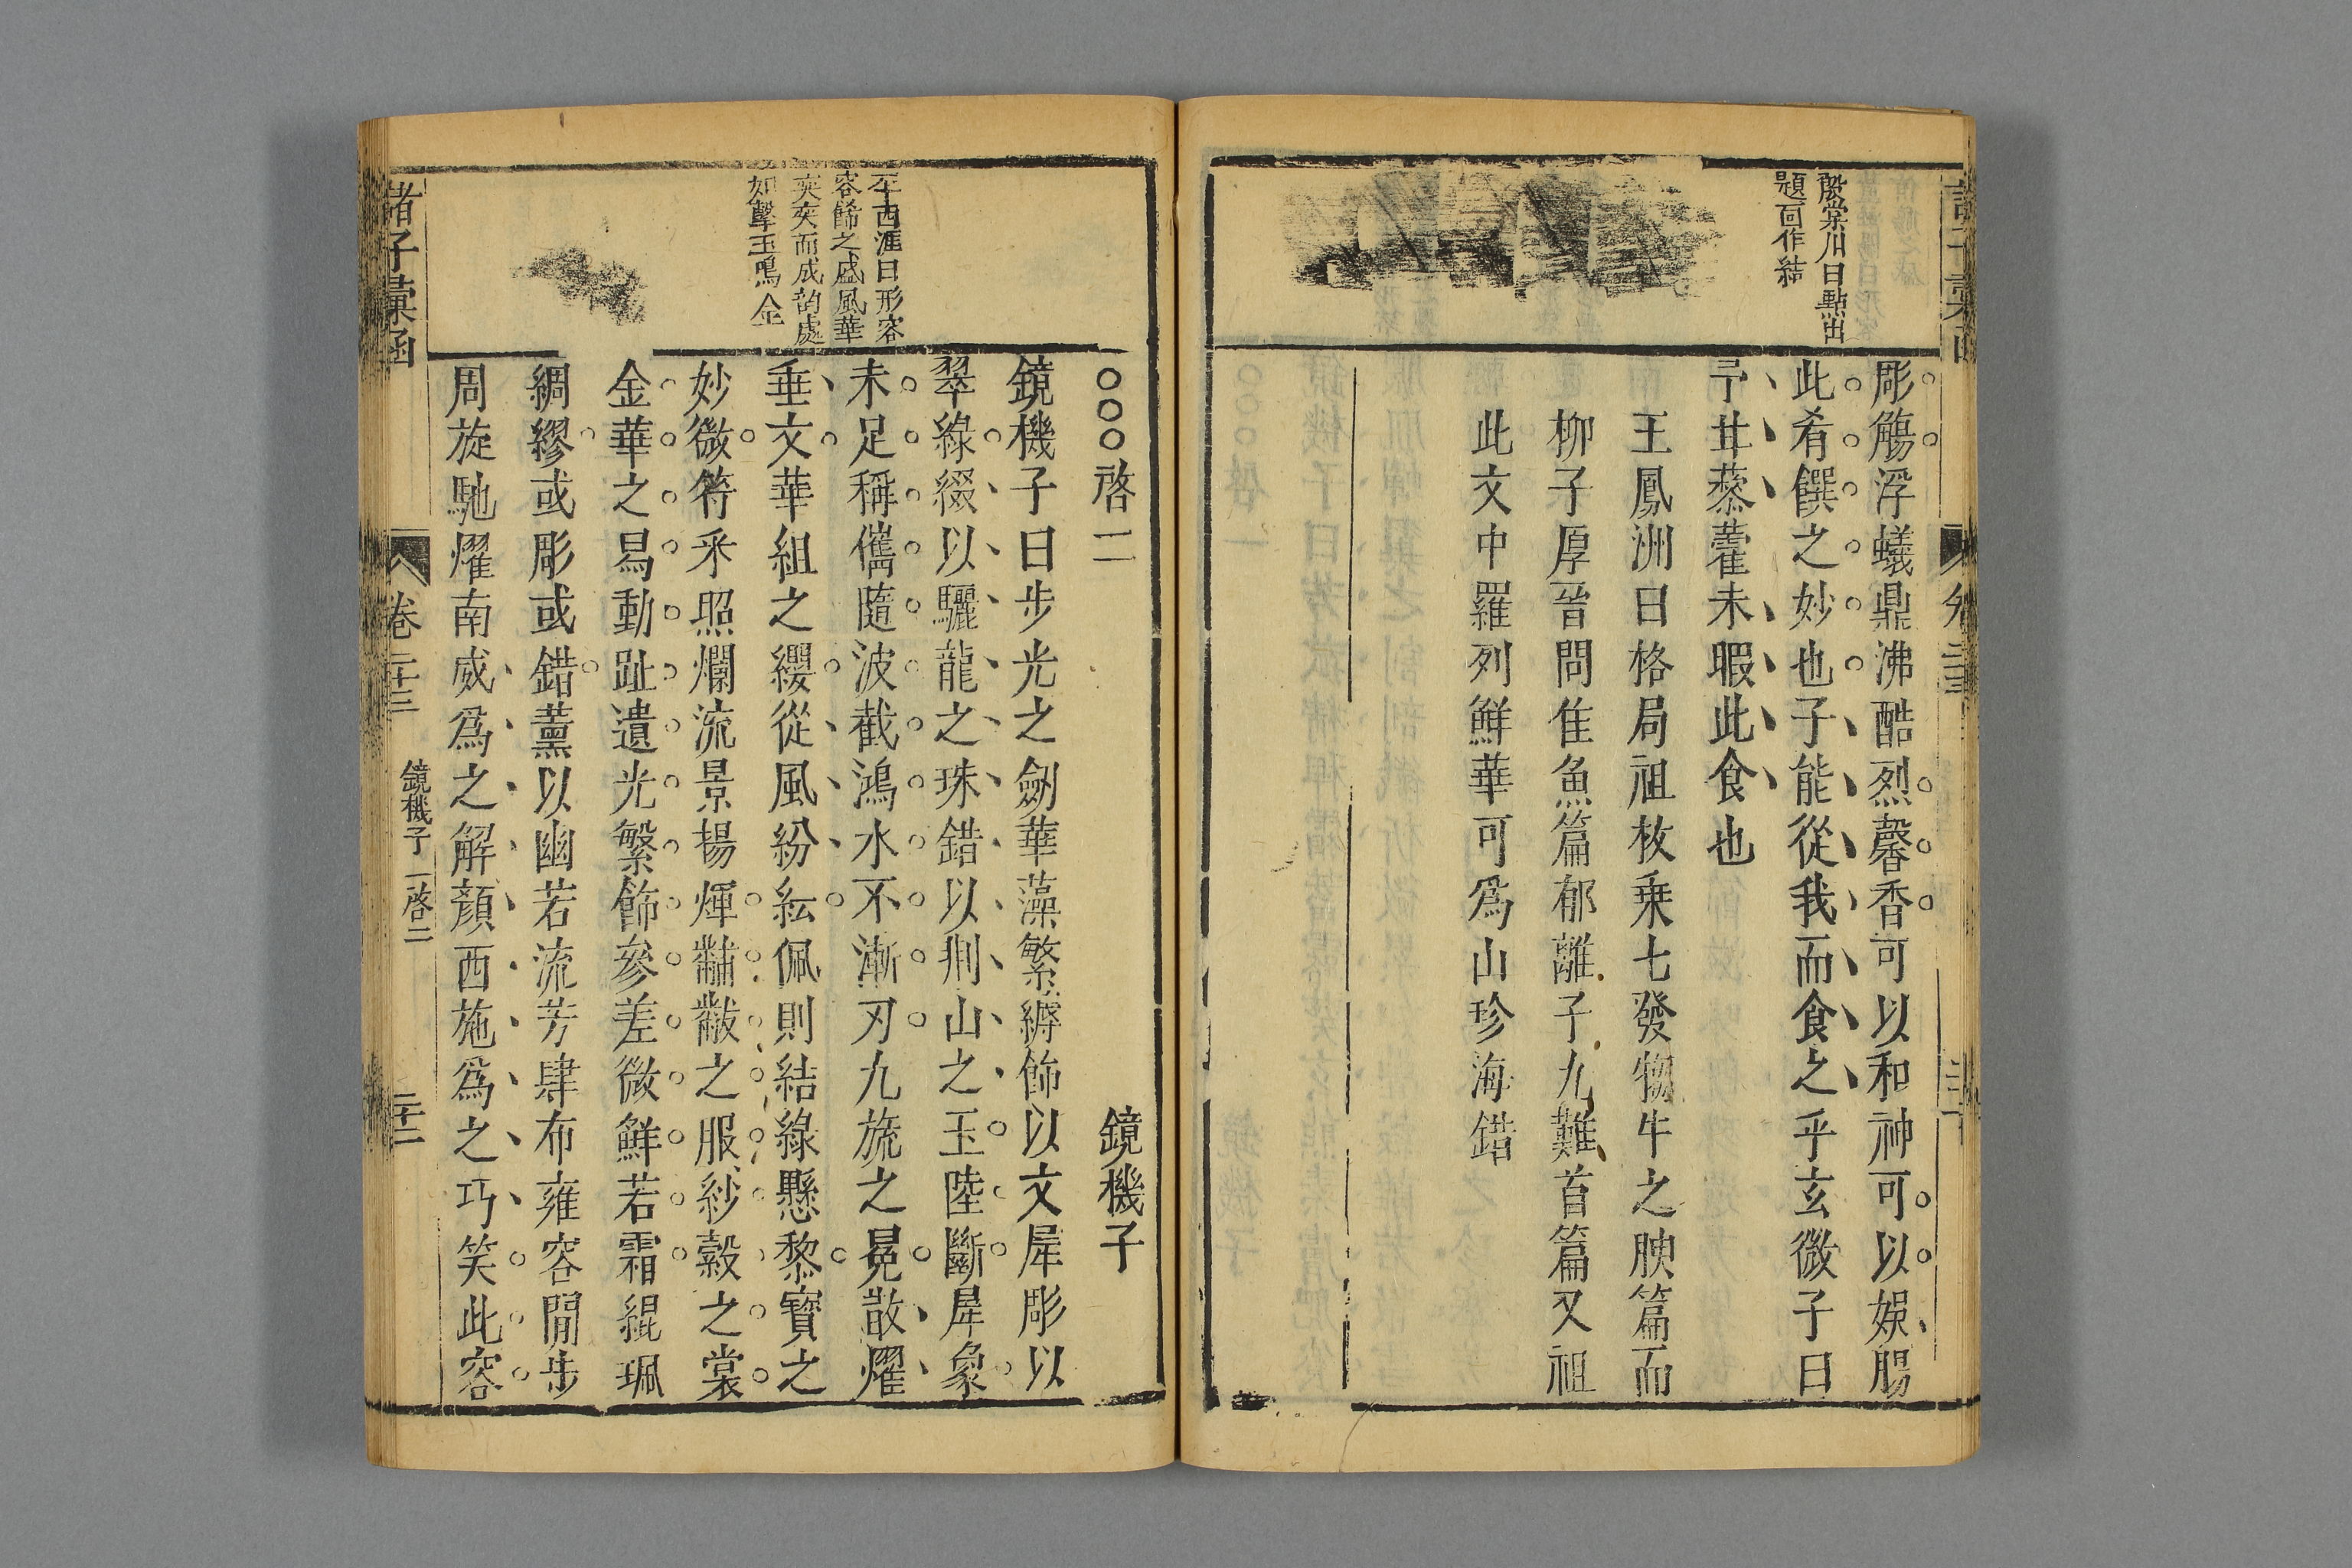 殷棠川曰點出
題回作結
彫觴浮蟻鼎沸酷烈馨香可以和神可以娛腸
此肴饌之妙也子能從我而食之乎玄微子曰
予甘藜藿未暇此食也
王鳳洲曰格局祖枚乗七發物牛之腴篇而
柳子厚晉問隹魚篇郁離子九難首篇又祖
此文中羅列鮮華可爲山珍海錯
西涯曰形容
容飾之盛風華
奕奕而成韵處
如擊玉鳴金
○○○啓二
鏡機子
鏡機子曰步光之劒華藻繁縟飾以文犀彫以
翠綠綴以驪龍之珠錯以荆山之玉陸斷犀象
未足稱儁隨波截鴻水不漸刃九旒之冕散燿
垂文華組之纓從風紛紜佩則結綠懸黎寶之
妙微符采照爛流景揚煇黼黻之服紗縠之裳
金華之舄動趾遺光繁飾參差微鮮若霜緄珮
綢繆或彫或錯薰以幽若流芳肆布雍容閒步
周旋馳燿南威爲之解顏西施爲之巧笑此容
諸子彚函
卷二十三
鏡機子
啓二
二十二